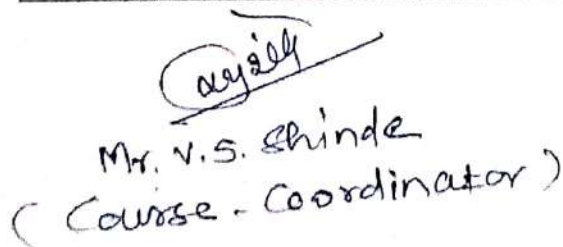 Mr. V. S. Shinde
( Course - Coordinator )